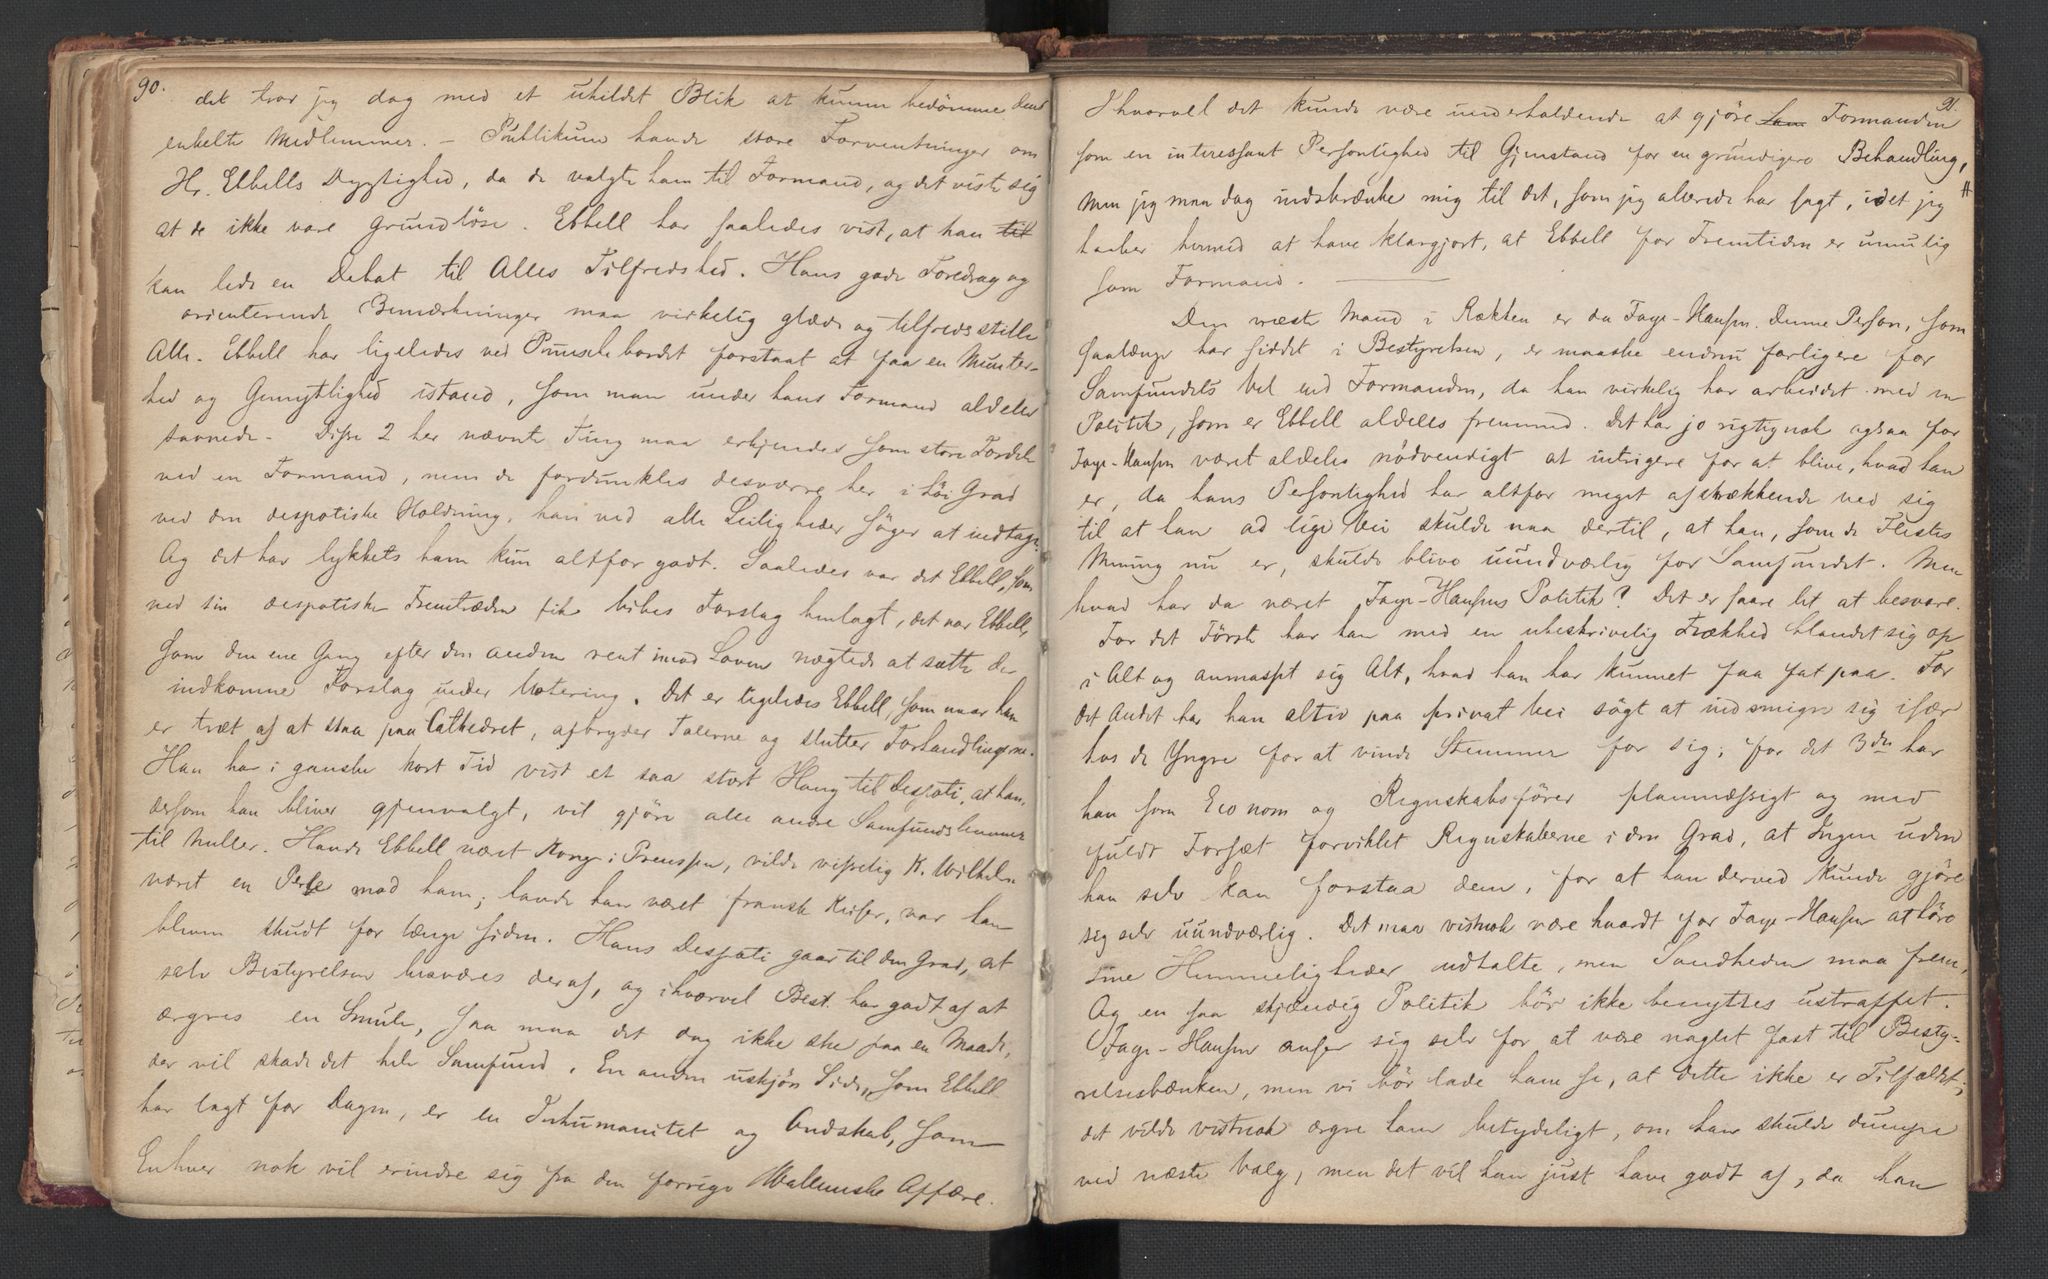 90.
det tror jeg dog med et uhildet Blik at kunne bedömme dens
enkelte Medlemmer. – Publikum havde store Forventninger om
Hr. Ebbells Dygtighed, da de valgte ham til Formand, og det viste sig
at de ikke vare grundlöse. Ebbell har saaledes vist, at han til
kan lede en Debat til Alles Tilfredshed. Hans gode Foredrag og
orienterende Bemærkninger maa virkelig glæde og tilfredsstille
Alle. Ebbell har ligeledes ved Punschebordet forstaat at faa en Munter-
hed og Gemytlighed istand, som man under hans Formand aldeles
savnede. Disse 2 her nævnte Ting maa erkjendes som store Fordele
ved en Formand, men de fordunkles desværre her i höi Grad
ved den despotiske Holdning, han ved alle Leiligheder söger at indtage.
Og det har lykkets ham kun altfor godt. Saaledes var det Ebbell, som
ved sin despotiske Fremtræden fik Vibes Forslag henlagt, det var Ebbell,
som den ene Gang efter den anden rent imod Loven nægtede at sætte de
indkomne Forslag under Votering. Det er ligeledes Ebbell, som naar han
er træt af at staa paa Cathedret, afbryder Talerne og slutter Forhandlingerne.
Han har i ganske kort Tid vist et saa stort Hang til Despoti, at han,
dersom han bliver gjenvalgt, vil gjöre alle andre Samfundslemmer
til Nuller. Havde Ebbell været Konge i Preussen, vilde visselig K. Wilhelm
været en Perle mod ham; havde han været fransk Keiser, var han
bleven skudt for længe siden. Hans Despoti gaar til den Grad, at
selv Bestyrelsen besværes deraf, og ihvorvel Best. har godt af at
ærgres en Smule, saa maa det dog ikke ske paa en Maade,
der vil skade det hele Samfund. En anden uskjön Side, som Ebbell
har lagt for Dagen, er en Inhumanitet og Ondskab, som
Enhver nok vil erindre sig fra den forrige Wallemske Affære.
91.
Ihvorvel det kunde være underholdende at gjöre Formanden
som en interessant Personlighed til Gjenstand for en grundigere Behandling,
men jeg maa dog indskrænke mig til det, som jeg allerede har sagt, idet jeg
haaber hermed at have klargjort, at Ebbell for Fremtiden er umulig
som Formand.
Den næste Mand i Rækken er da Faye-Hansen. Denne Person, som
saalænge har siddet i Bestyrelsen, er maaske endnu farligere for
Samfundets Vel end Formanden, da han virkelig har arbeidet med en
Politik, som er Ebbell aldeles fremmed. Det har jo rigtignok ogsaa for
Faye-Hansen været aldeles nödvendigt at intrigere for at blive, hvad han
er, da hans Personlighed har altfor meget afskrækkende ved sig
til at han ad lige Vei skulde naa dertil, at han, som de Flestes
Mening nu er, skulde blive uundværlig for Samfundet. Men
hvad har da været Faye-Hansens Politik? Det er saare let at besvare.
For det Förste har han med en ubeskrivelig Frækhed blandet sig op
i Alt og anmasset sig Alt, hvad han har kunnet faa fat paa. For
det Andet har han altid paa privat Vei sögt at indsmigre sig især
hos de Yngre for at vinde Stemmer for sig; for det 3die har
han som Econom og Regnskabsförer planmæssigt og med
fuldt Forsæt forviklet Regnskaberne i den Grad, at Ingen uden
han selv kan forstaa dem, for at han derved kunde gjöre
sig selv uundværlig. Det maa vistnok være haardt for Faye-Hansen at höre
sine Hemmeligheder udtalte, men Sandheden maa frem,
Og en saa skjændig Politik bör ikke benyttes ustraffet.
Faye-Hansen anser sig selv for at være naglet fast til Besty-
relsesbænken, men vi bör lade ham se, at dette ikke er Tilfældet;
det vilde vistnok ærgre ham betydeligt, om han skulde dumpe
ved næste Valg, men det vil han just have godt af, da han